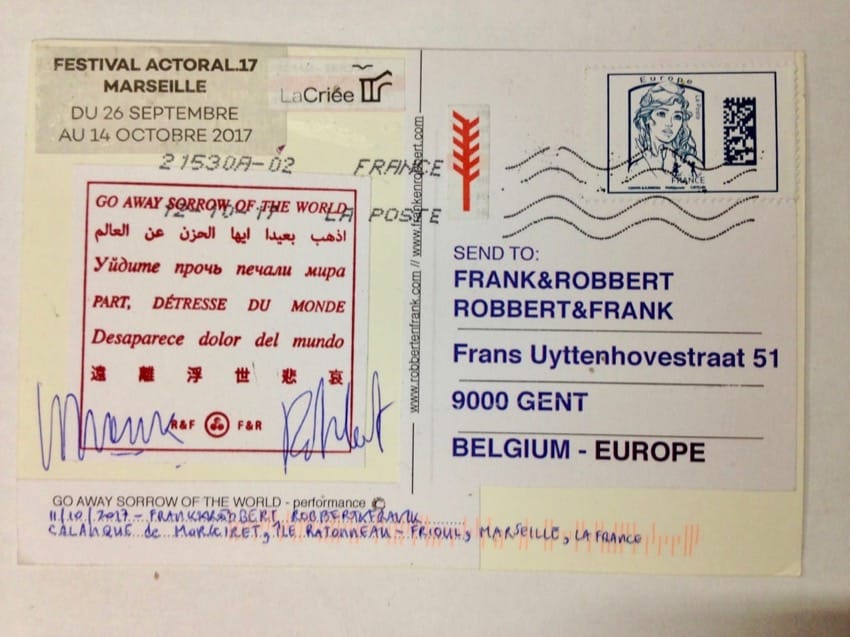 FESTIVAL ACTORAL.17
MARSEILLE
DU 26 SEPTEMBRE
AU 14 OCTOBRE 2017
LaCriée
21530A-02 FRANCE
12-10-17 LA POSTE
GO AWAY SORROW OF THE WORLD
اذهب بعيدا ايها الحزن عن العالم
Уйдите прочь печали мира
PART, DÉTRESSE DU MONDE
Desaparece dolor del mundo
遠離浮世悲哀
R&F F&R
GO AWAY SORROW OF THE WORLD - performance ©
11/10/2017 - FRANK&ROBBERT ROBBERT&FRANK
CALANQUE de MORGIRET, ÎLE RATONNEAU - FRIOUL, MARSEILLE, LA FRANCE
www.robbertenfrank.com // www.frankenrobbert.com
Europe
La Poste
FRANCE
SEND TO:
FRANK&ROBBERT
ROBBERT&FRANK
Frans Uyttenhovestraat 51
9000 GENT
BELGIUM - EUROPE